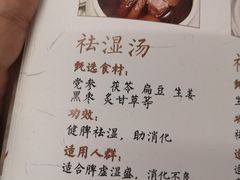 祛湿汤
甄选食材:
党参 茯苓 扁豆 生姜
黑枣 炙甘草等
功效:
健脾祛湿,助消化
适用人群:
适合脾虚湿盛,消化不良